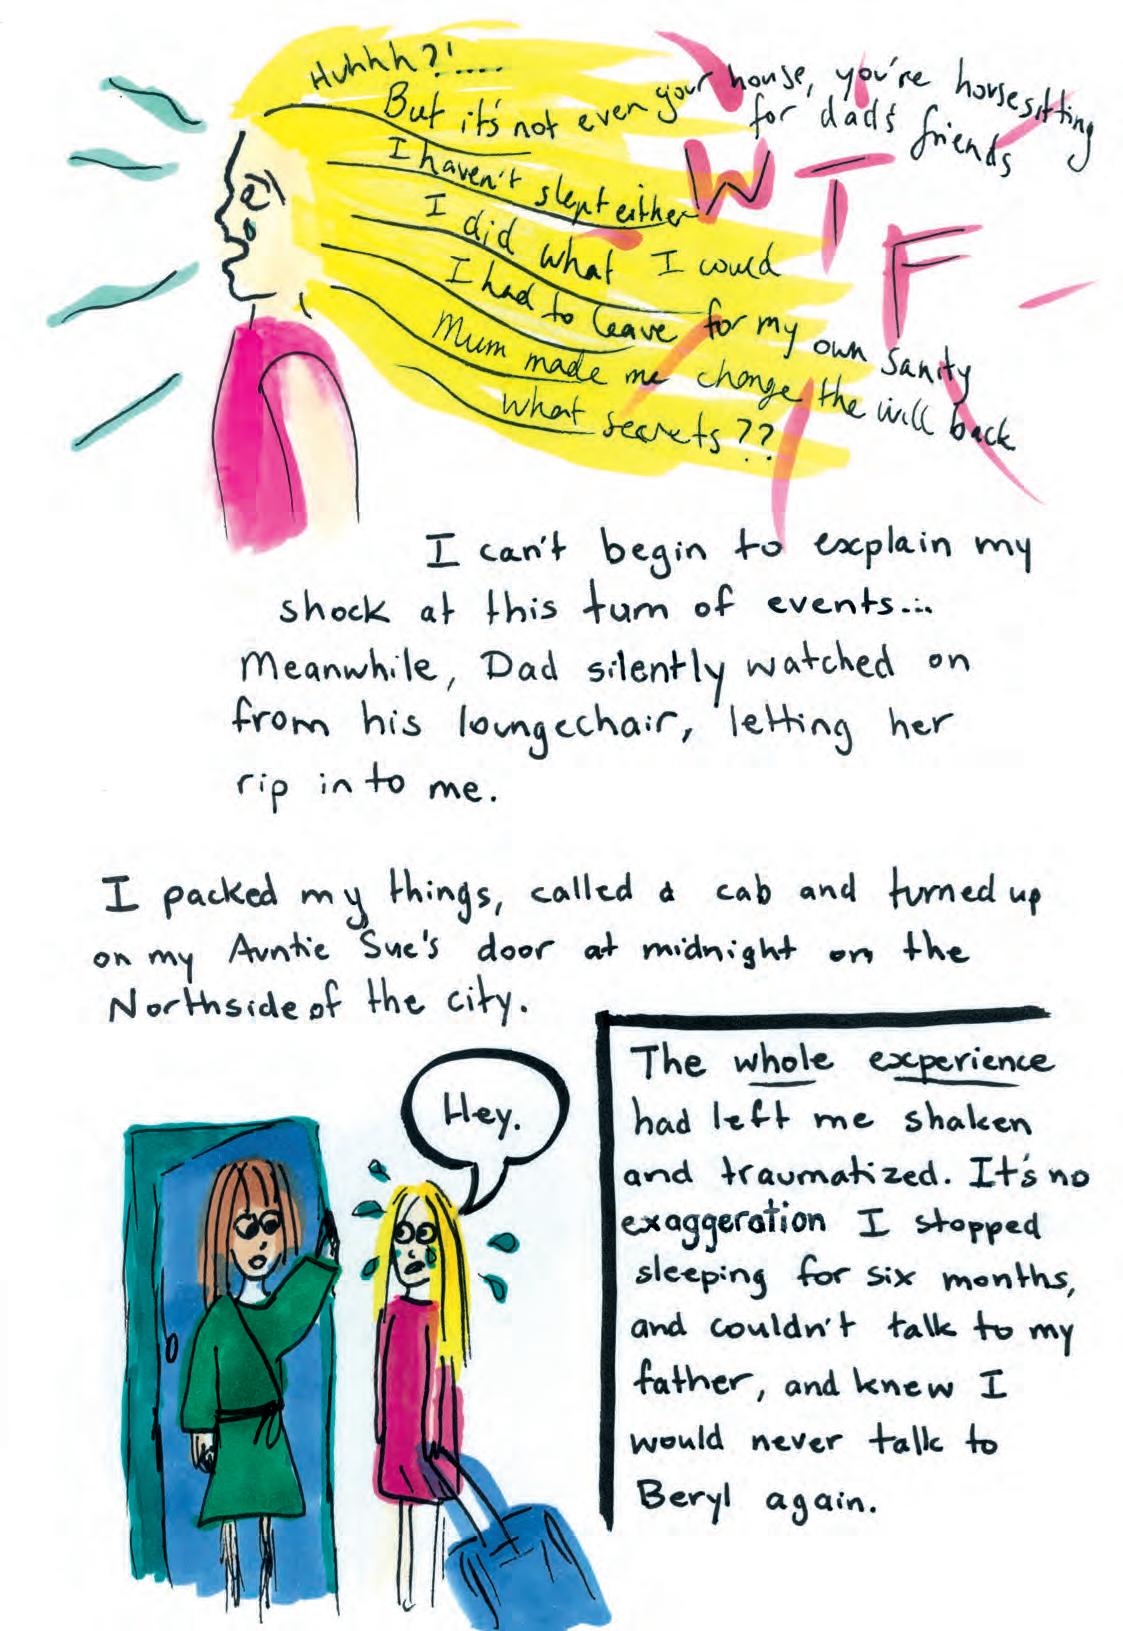 Huhhh?!.....
But it's not even your house, you're housesitting
for dad's friends
I haven't slept either
W T F
I did what I could
I had to leave for my own sanity
Mum made me change the will back
what secrets??
I can't begin to explain my
shock at this turn of events...
Meanwhile, Dad silently watched on
from his loungechair, letting her
rip into me.
I packed my things, called a cab and turned up
on my Auntie Sue's door at midnight on the
Northside of the city.
Hey.
The whole experience
had left me shaken
and traumatized. It's no
exaggeration I stopped
sleeping for six months,
and couldn't talk to my
father, and knew I
would never talk to
Beryl again.